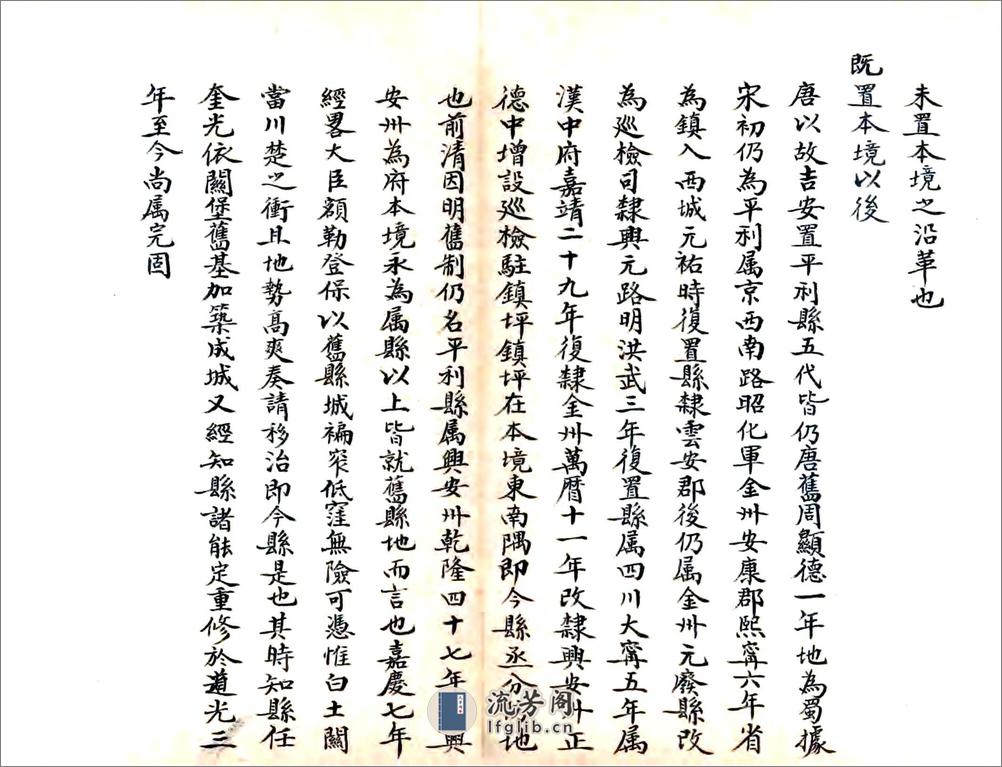 未置本境之沿革也
既置本境以後
唐以故吉安置平利縣五代皆仍唐舊周顯德一年地為蜀據
宋初仍為平利属京西南路昭化軍金州安康郡熙寧六年省
為鎮入西城元祐時復置縣隸雲安郡後仍属金州元廢縣改
為巡檢司隸興元路明洪武三年復置縣属四川大寧五年属
漢中府嘉靖二十九年復隸金州萬曆十一年改隸興安州正
德中增設巡檢駐鎮坪鎮坪在本境東南隅即今縣丞分地
也前清因明舊制仍名平利縣属興安州乾隆四十七年興
安州為府本境永為属縣以上皆就舊縣地而言也嘉慶七年
經畧大臣額勒登保以舊縣城褊窄低窪無險可憑惟白土關
當川楚之衝且地勢高爽奏請移治即今縣是也其時知縣任
奎光依關堡舊基加築成城又經知縣諸能定重修於道光三
年至今尚属完固
流芳阁
lfglib.cn